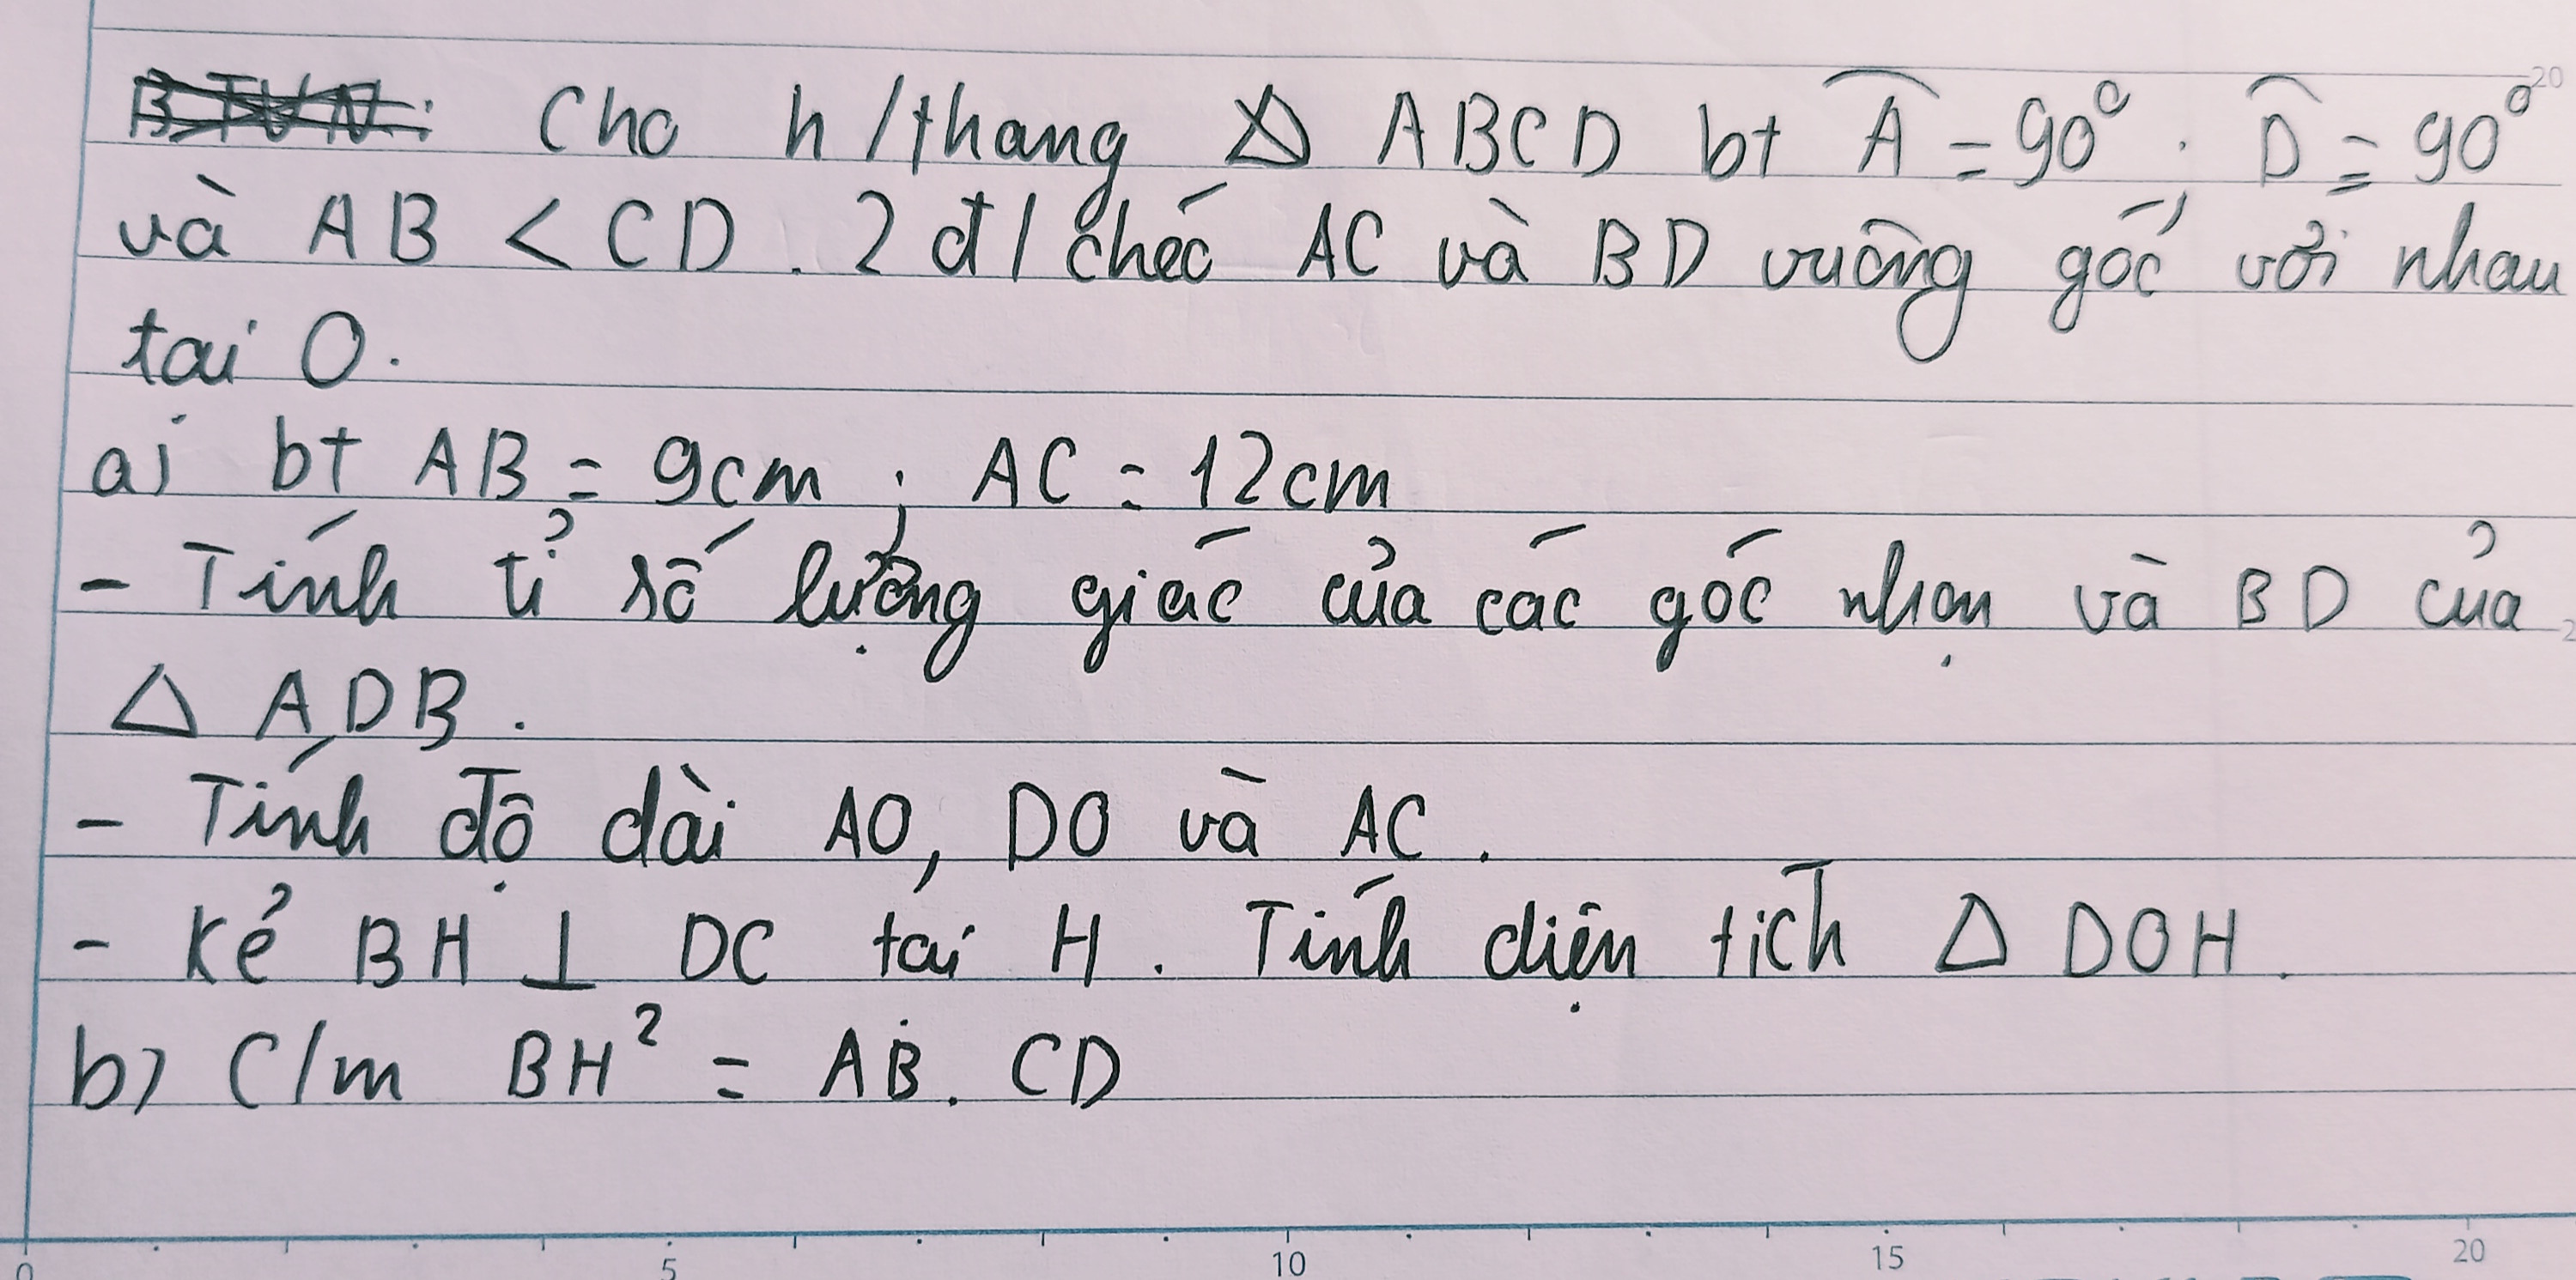 Cho h/thang ABCD bt Â = 90°; D̂ = 90°
và AB < CD. 2 đ/chéo AC và BD vuông góc với nhau
tại O.
a) bt AB = 9cm; AC = 12cm
- Tính tỉ số lượng giác của các góc nhọn và BD của
Δ ADB.
- Tính độ dài AO, DO và AC.
- Kẻ BH ⊥ DC tại H. Tính diện tích Δ DOH.
b) C/m BH² = AB. CD
0 5 10 15 20